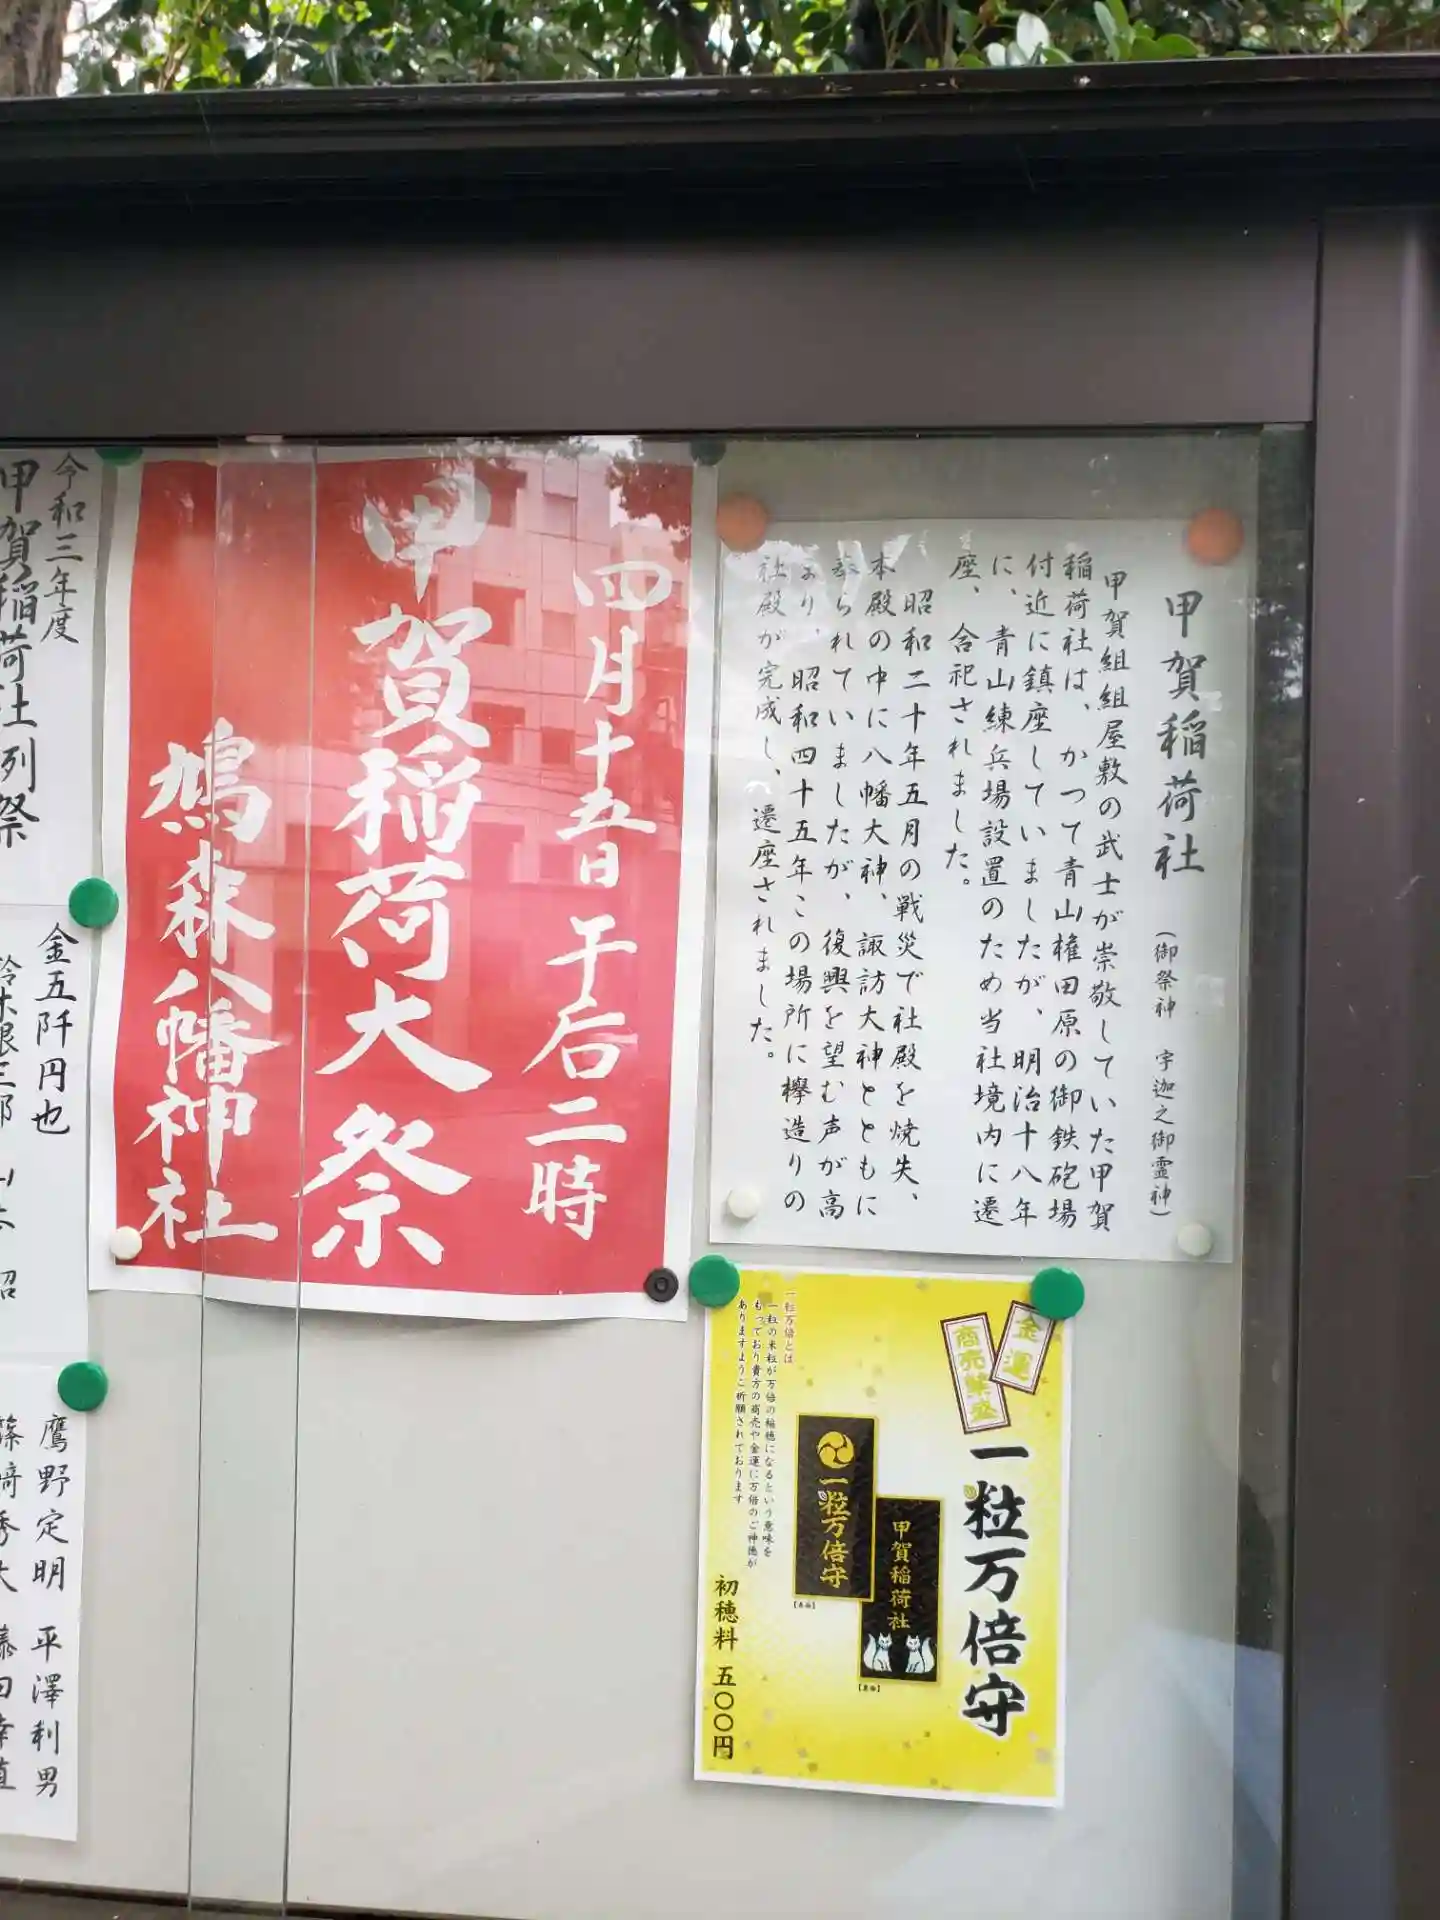 甲賀稲荷社 (御祭神 宇迦之御霊神)
甲賀組組屋敷の武士が崇敬していた甲賀
稲荷社は、かつて青山権田原の御鉄砲場
付近に鎮座していましたが、明治十八年
に、青山練兵場設置のため当社境内に遷
座、合祀されました。
昭和二十年五月の戦災で社殿を焼失、
本殿の中に八幡大神、諏訪大神とともに
奉られていましたが、復興を望む声が高
まり、昭和四十五年この場所に欅造りの
社殿が完成し、遷座されました。
四月十五日 午后二時
甲賀稲荷大祭
鳩森八幡神社
金運
商売繁盛
一粒万倍守
甲賀稲荷社
【裏面】
一粒万倍守
【表面】
一粒万倍とは
一粒の米粒が万倍の稲穂になるという意味を
もっており貴方の商売や金運に万倍のご神徳が
ありますようご祈願されております
初穂料 五〇〇円
令和三年度
甲賀稲荷社例祭
金五阡円也
鷹野定明 平澤利男